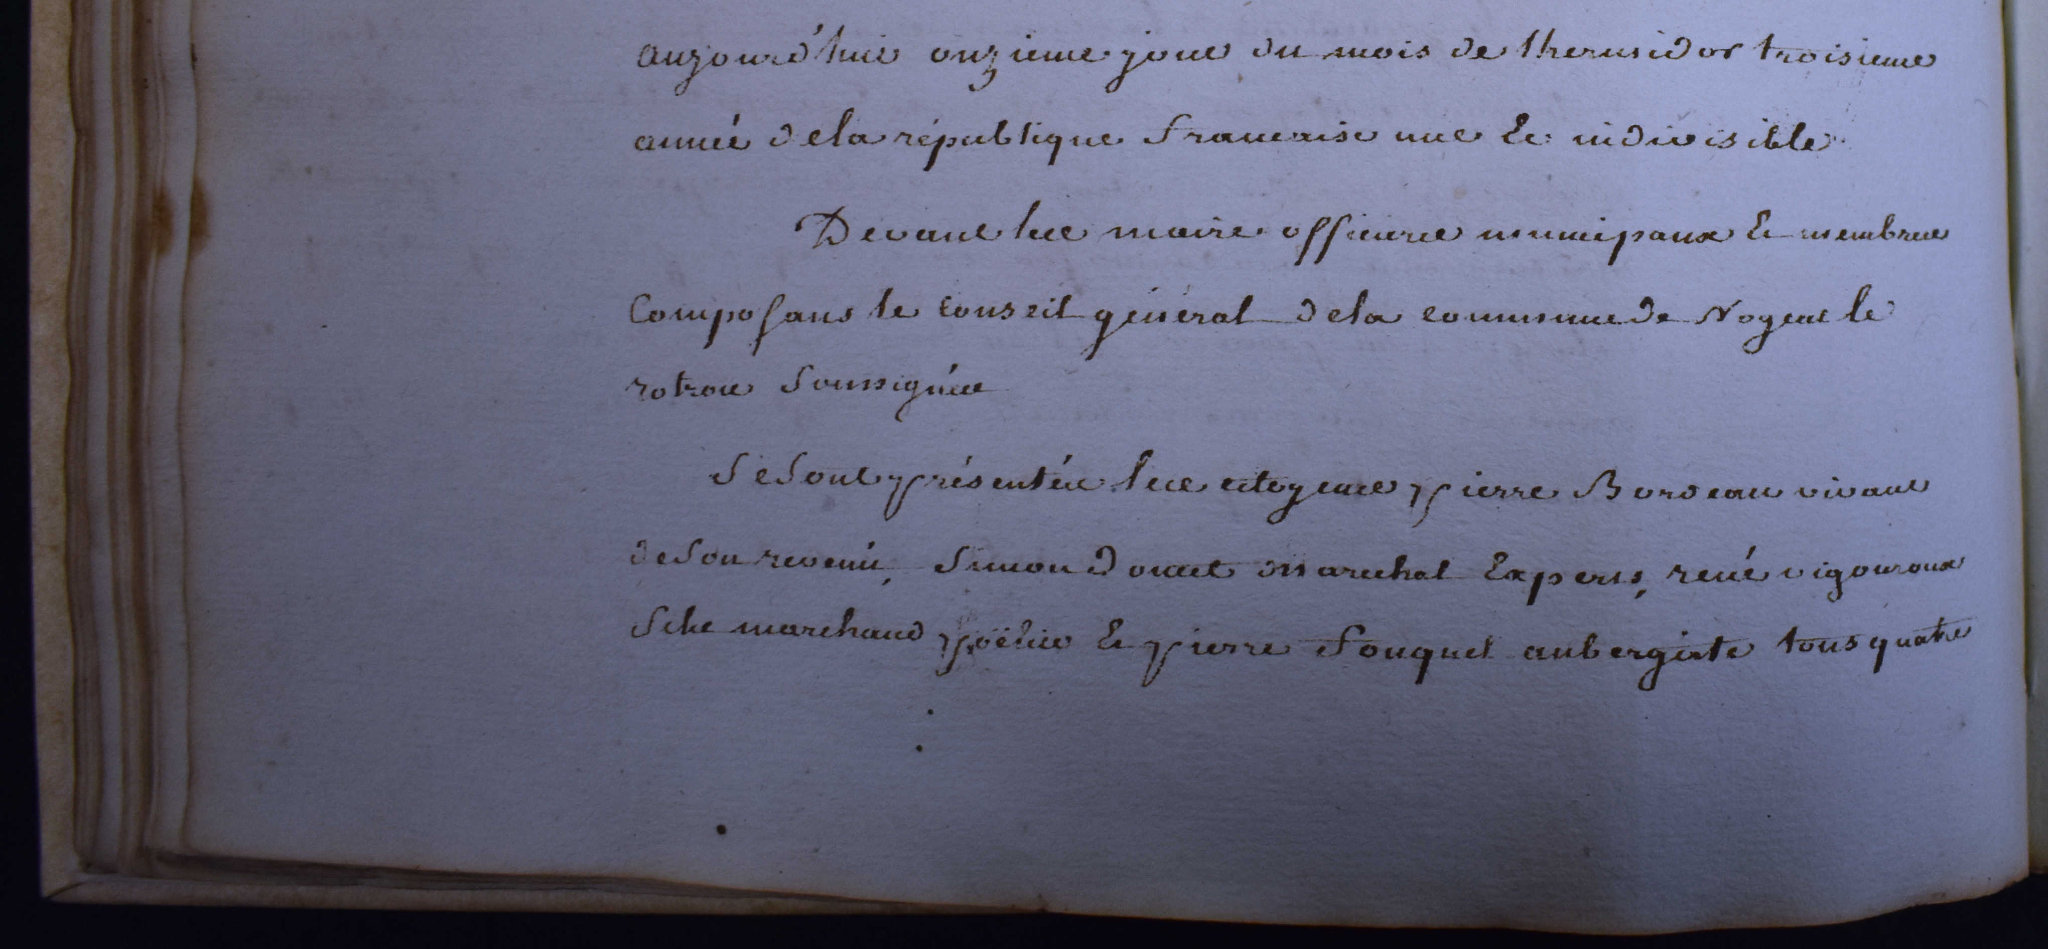 aujourd'hui onzieme jour du mois de thermidor troisieme
année dela république francaise une et indivisible
Devant les maire officiers municipaux et membres
Composans le conseil général dela commune de Nogent le
rotrou soussignés
Se sont présentés les citoyens pierre Bordeau vivant
de son revenu, Simon Doucet marechal Expers, rené vigouroux
marchand poëlier et pierre fouquet aubergiste tous quatre